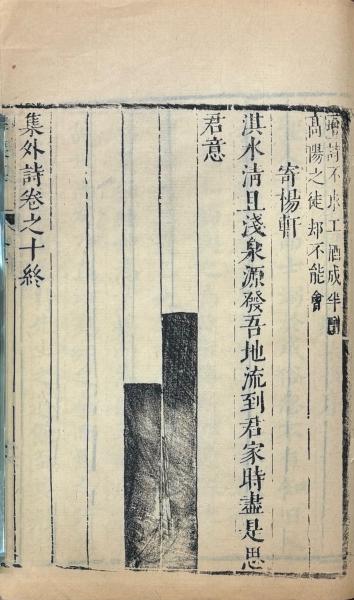 曾詩不求工酒成半
高陽之徒却不能會
寄楊軒
淇水清且淺泉源發吾地流到君家時盡是思
君意
集外詩卷之十終